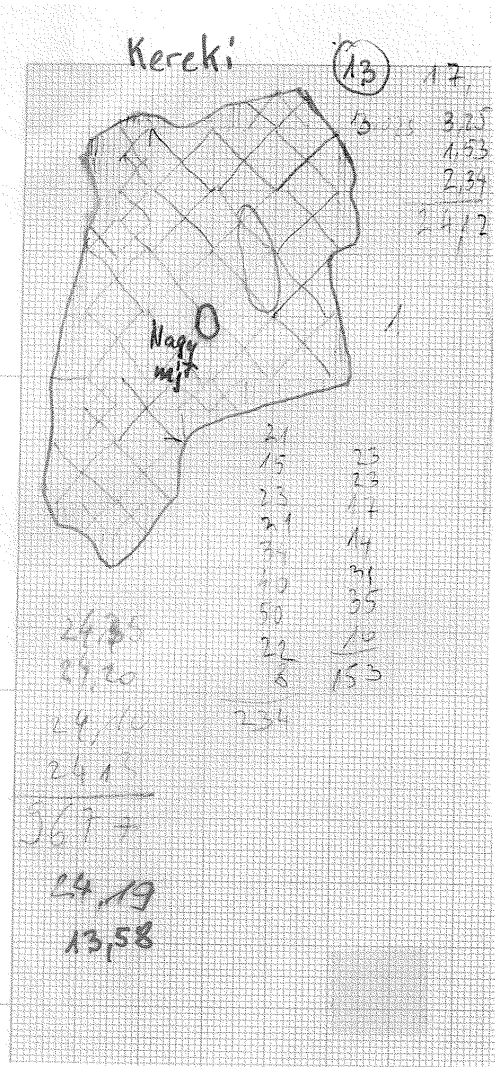 Kereki
13
17,
3,25
1,53
2,34
24,12
Nagy
maj
1
21
15
23
21
10
50
22
8
234
23
23
17
14
31
35
10
153
24,20
24,10
24 13
9677
24,19
13,58